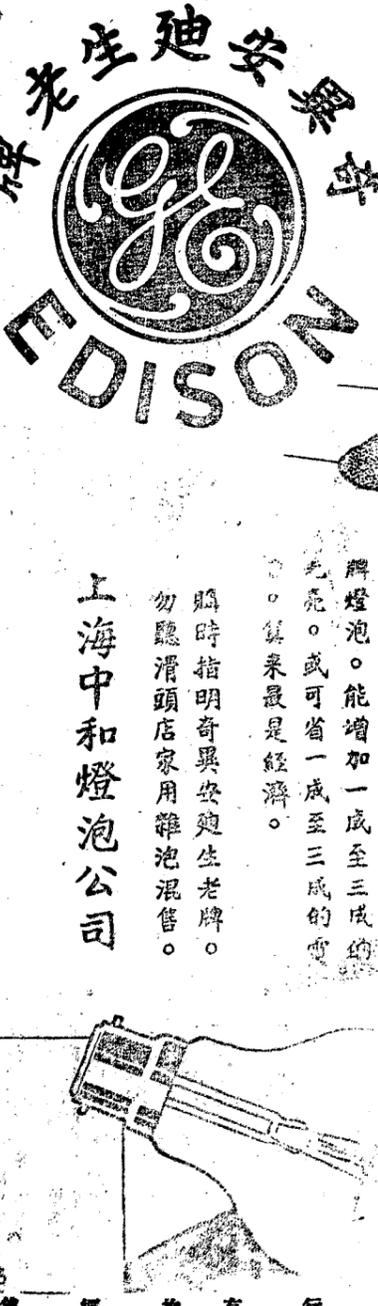 奇異安廸生老牌
GE
EDISON
牌燈泡。能增加一成至三成的
光亮。或可省一成至三成的電
。算來最是經濟。
購時指明奇異安廸生老牌。
勿聽滑頭店家用雜泡混售。
上海中和燈泡公司